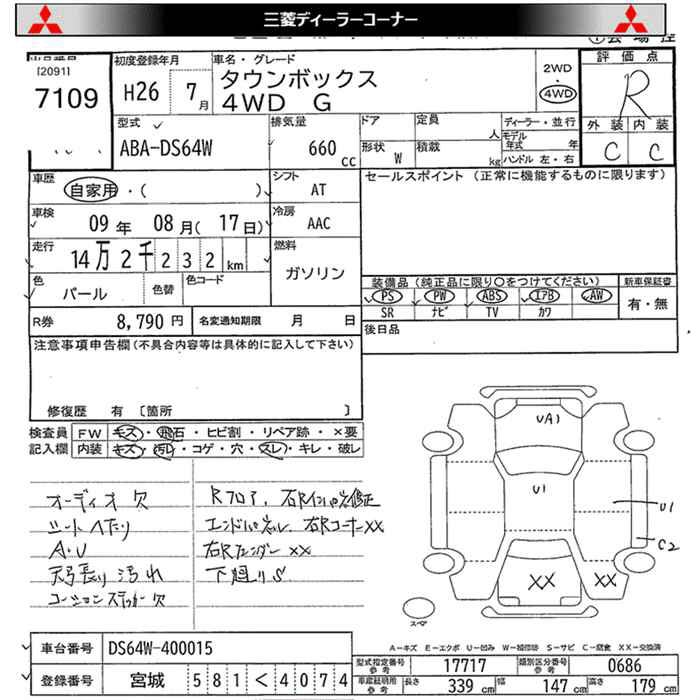 三菱ディーラーコーナー
[2091]
7109
初度登録年月
H26 7月
車名・グレード
タウンボックス
4WD G
2WD
4WD
評価点
R
外装 内装
C C
型式
ABA-DS64W
排気量
660 cc
ドア
形状 W
定員 人
積載 kg
ディーラー・並行
モデル年式 年
ハンドル 左・右
車歴
自家用・( )
シフト
AT
セールスポイント (正常に機能するものに限ります)
車検
09年 08月( 17日)
冷房
AAC
走行
14万2千232km
燃料
ガソリン
色
パール
色替
色コード
装備品(純正品に限り○をつけてください)
新車保証書
PS PW ABS エアB AW
有・無
SR ナビ TV カワ
R券 8,790円
名変通知期限 月 日
後日品
注意事項申告欄(不具合内容等は具体的に記入して下さい)
修復歴 有 [箇所 ]
検査員記入欄
FW キズ・飛石・ヒビ割・リペア跡・×要
内装 キズ・汚レ・コゲ・穴・スレ・キレ・破レ
オーディオ欠
シートヘたり
A・U
天張り汚れ
コーションステッカー欠
Rフロア、右Rインパネ修正
エンドパネル、右RコーナーXX
右Rフェンダー XX
下廻りS
UA1
U1
U1
C2
XX
XX
スペア
A-キズ E-エクボ U-凹み W-補修跡 S-サビ C-腐食 XX-交換済
車台番号 DS64W-400015
登録番号 宮城 581 < 4074
型式指定番号 参考 17717
類別区分番号 参考 0686
車庫証明用 参考 長さ 339 cm 幅 147 cm 高さ 179 cm